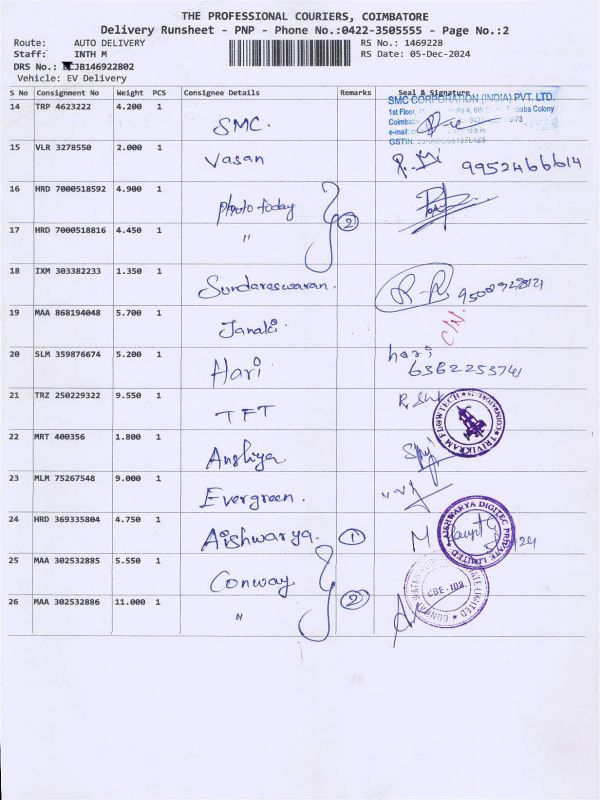 THE PROFESSIONAL COURIERS, COIMBATORE
Delivery Runsheet - PNP - Phone No.:0422-3505555 - Page No.:2
Route: AUTO DELIVERY RS No.: 1469228
Staff: INTH M RS Date: 05-Dec-2024
DRS No.: JB146922802
Vehicle: EV Delivery
S No Consignment No Weight PCS Consignee Details Remarks Seal & Signature
SMC CORPORATION (INDIA) PVT. LTD.
14 TRP 4623222 4.200 1 SMC.
15 VLR 3278550 2.000 1 Vasan 9952466614
16 HRD 7000518592 4.900 1 Photo today 2
17 HRD 7000518816 4.450 1 "
18 IXM 303382233 1.350 1 Sundareswaran.
19 MAA 868194048 5.700 1 Janaki. C/N.
20 SLM 359876674 5.200 1 Hari hari
6362253741
21 TRZ 250229322 9.550 1 TFT TRIVIKRAM FLOWTECH COIMBATORE
22 MRT 400356 1.800 1 Anshiya
23 MLM 75267548 9.000 1 Evergreen.
24 HRD 369335804 4.750 1 Aishwarya. 1 AISHWARYA DIGITEC PRIVATE LIMITED
25 MAA 302532885 5.550 1 Conway 2
26 MAA 302532886 11.000 1 "